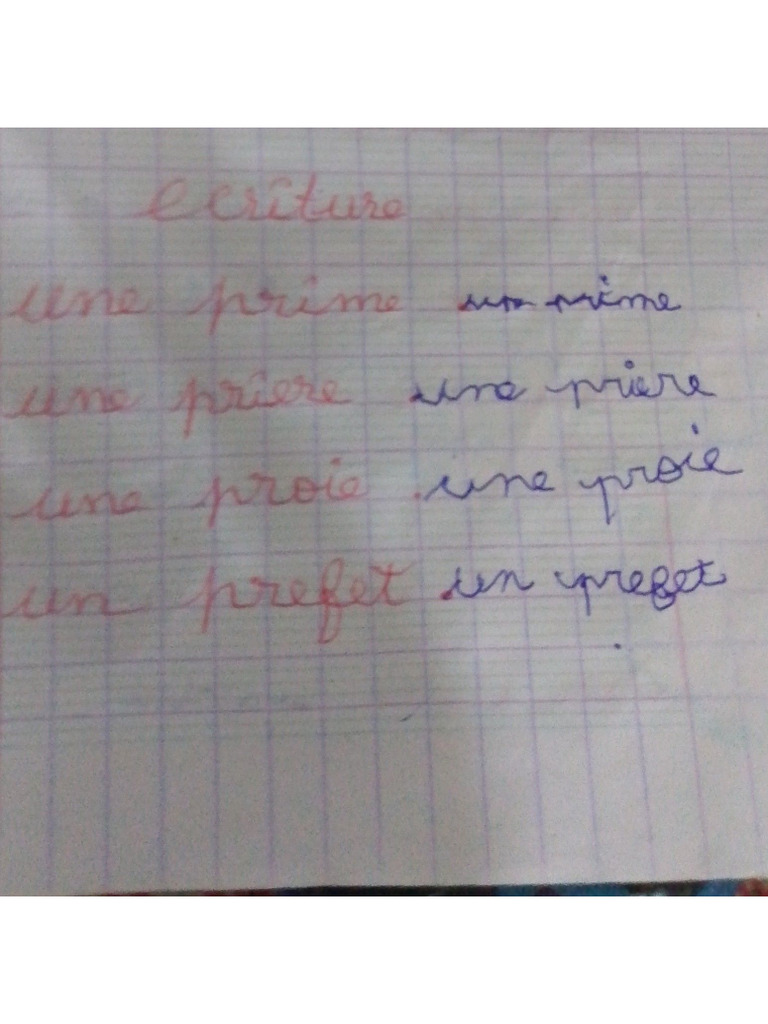 ecriture
une prime une prime
une priere une priere
une proie une proie
un prefet un prefet